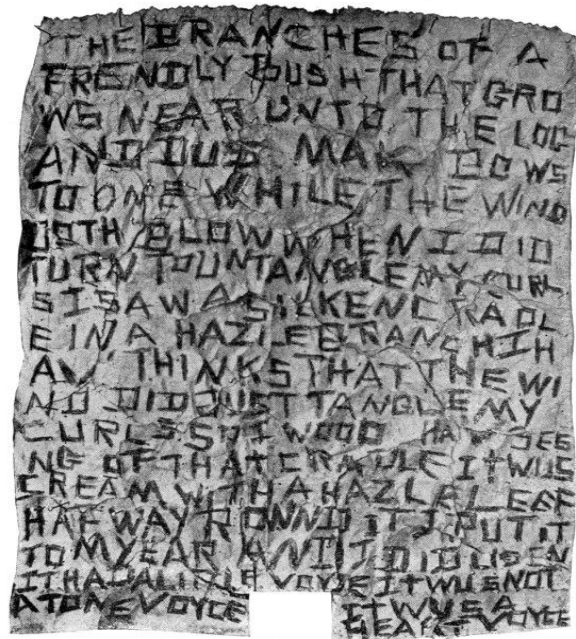 THE BRANCHES OF A
FRENDLY BUSH THAT GRO
WS NEAR UNTO THE LOG
AND DUS MAK BOWS
TO ONE WHILE THE WIND
DOTH BLOW WHEN I DID
TURN TOUNTANGLE MY CURL
S I SAW A SILKEN CRADL
E IN A HAZLE BRANCH I H
AV THINKS THAT THE WI
ND DID DUST TANGLE MY
CURLS SO I WOOD HAV SEE
NG OF THAT CRADLE IT WUS
CREAM WITH A HAZLE LEEF
HAF WAY ROWND IT I PUT IT
TO MY EAR AND I DID LISEN
IT HAD A LITLE VOYCE IT WUS NOT
A TONE VOYCE IT WUS A
HEART VOYCE